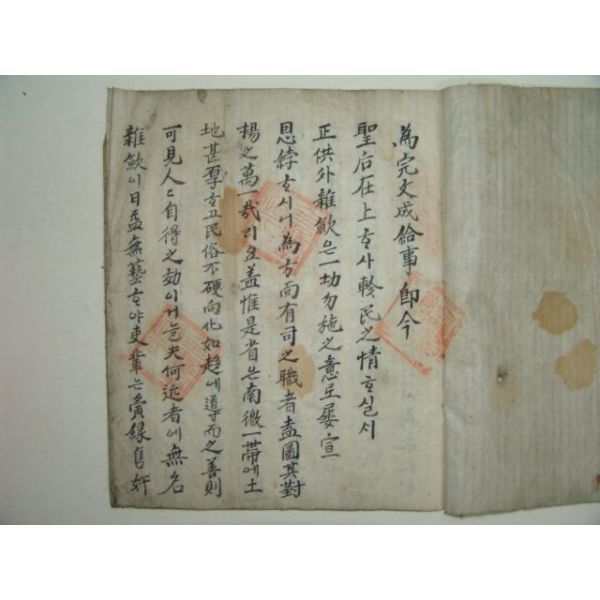 為完文成給事 即今
聖后在上ᄒᆞ사 軫民之情ᄒᆞ실ᄉᆡ
正供外雜歛은 一切勿施之意로 屢宣
恩綍ᄒᆞ시니 為方面有司之職者 盍圖其對
揚之萬一哉리오 盖惟是省은 南徼一帶에 土
地甚厚ᄒᆞ고 民俗不硬 向化如趍에 導而之善則
可見人人自得之効이거ᄂᆞᆯ 夫何近者에 無名
雜歛이 日益無藝ᄒᆞ야 吏輩는 夤縁售奸